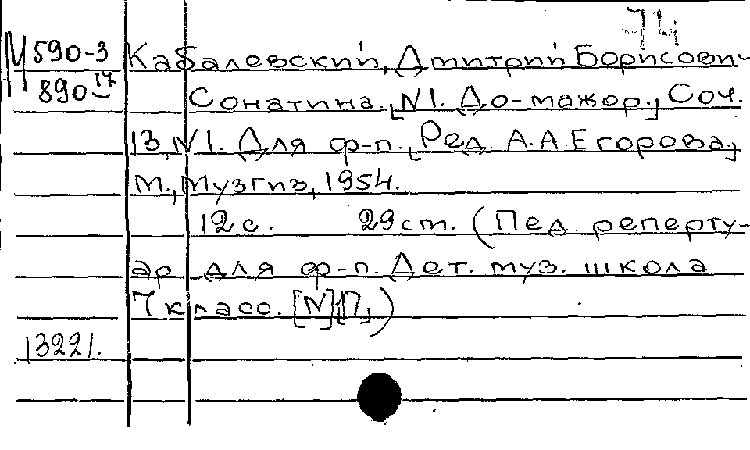 М 590-3
890 17
Кабалевский, Дмитрий Борисович
Сонатина. [N1. До-мажор.] Соч.
13, N1. Для ф-п. [Ред. А.А.Егорова.]
М., Музгиз, 1954.
12 с. 29 cm. (Пед. реперту-
ар для ф-п. Дет. муз. школа
7 класс. [N]
13221.